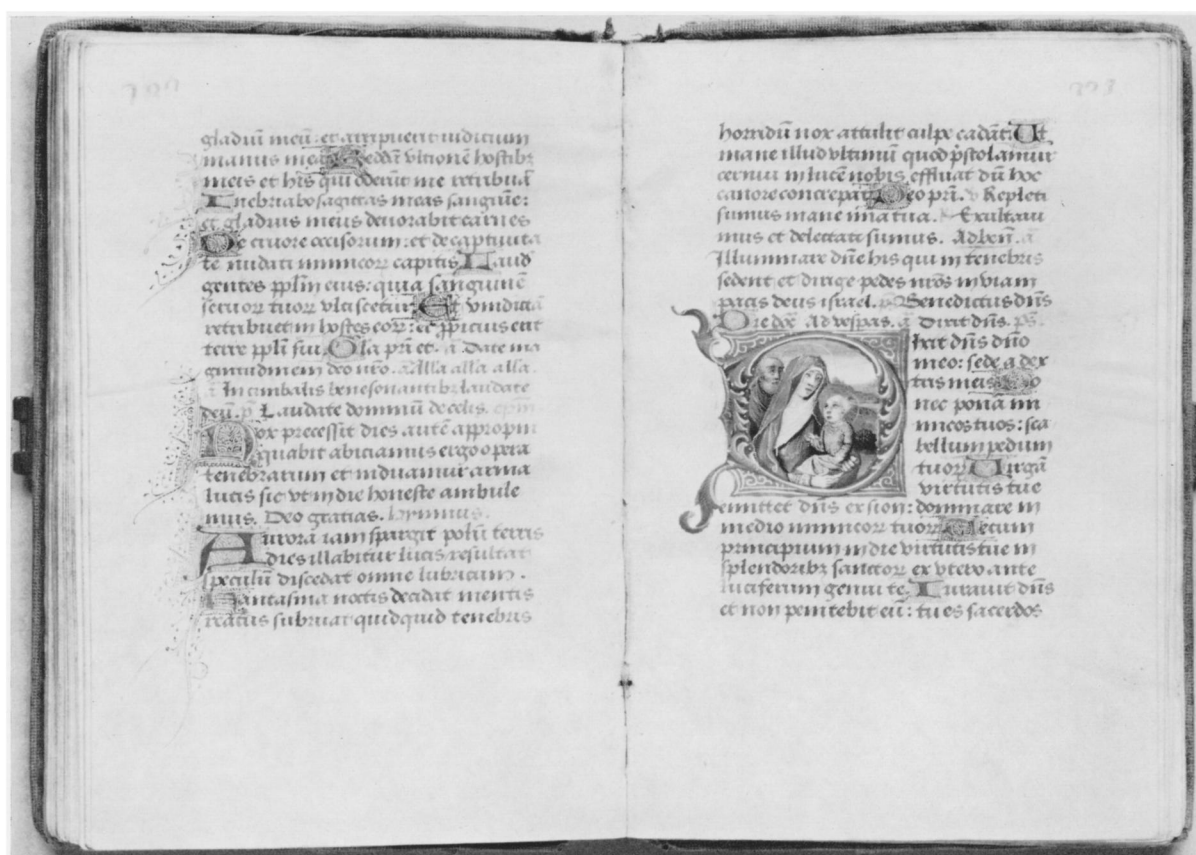 gladiū meū: et arripuerit iudicium
manus mea Reddā ultionē hostibꝫ
meis et his qui oderūt me retribuā
Inebriabo sagittas meas sanguīe:
et gladius meus devorabit carnes
De cruore occisorum: et de captivita
te nudati inimicorꝝ capitis Laud
gentes pplm̄ eius: quia sanguinē
servorꝝ tuorꝝ vlciscetur Et vindictā
retribuet in hostes eorꝝ: et ppicius erit
terre ppli sui. Gla pr̄i et. ā Date ma
gnitudinem deo nr̄o. Alla alla alla.
ā In cimbalis benesonantibꝫ laudate
deū. p̄ Laudate dominū de celis.
Nox precessit dies autē appropin
quabit abiciamus ergo opera
tenebrarum et induamur arma
lucis sic vt in die honeste ambule
mus. Deo gratias. hymnus.
Aurora iam spargit polū terris
dies illabitur lucis resultat
speculū discedat omne lubricum.
Fantasma noctis decidat mentis
reatus subruat quidquid tenebris
horridū nox attulit culpe cadāt. Ut
mane illud vltimum quod p̄stolamur
cernui in lucē nobis effluat dū hoc
canore concrepat Deo pri. Repleti
sumus mane mia tua. Exultavi
mus et delectati sumus. Ad ben̄. ā
Illuminare dn̄e his qui in tenebris
sedent et dirige pedes nr̄os in viam
pacis deus israel. p̄s Benedictus dn̄s
Ad vespas. ā Dixit dn̄s. p̄s.
Dixit dn̄s dn̄o
meo: sede a dex
tris meis Do
nec ponā ini
micos tuos: sca
bellum pedum
tuorꝝ Virgā
virtutis tue
emittet dn̄s ex sion: dominare in
medio inimicorꝝ tuorꝝ Tecum
principium in die virtutis tue in
splendoribꝫ sanctorꝝ ex vtero ante
luciferum genui te. Iuravit dn̄s
et non penitebit eū: tu es sacerdos